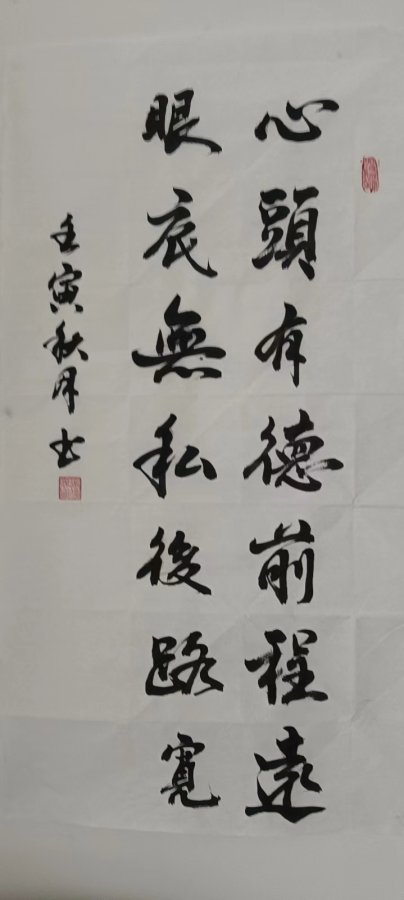 心頭有德前程遠
眼底無私後路寬
壬寅秋月书